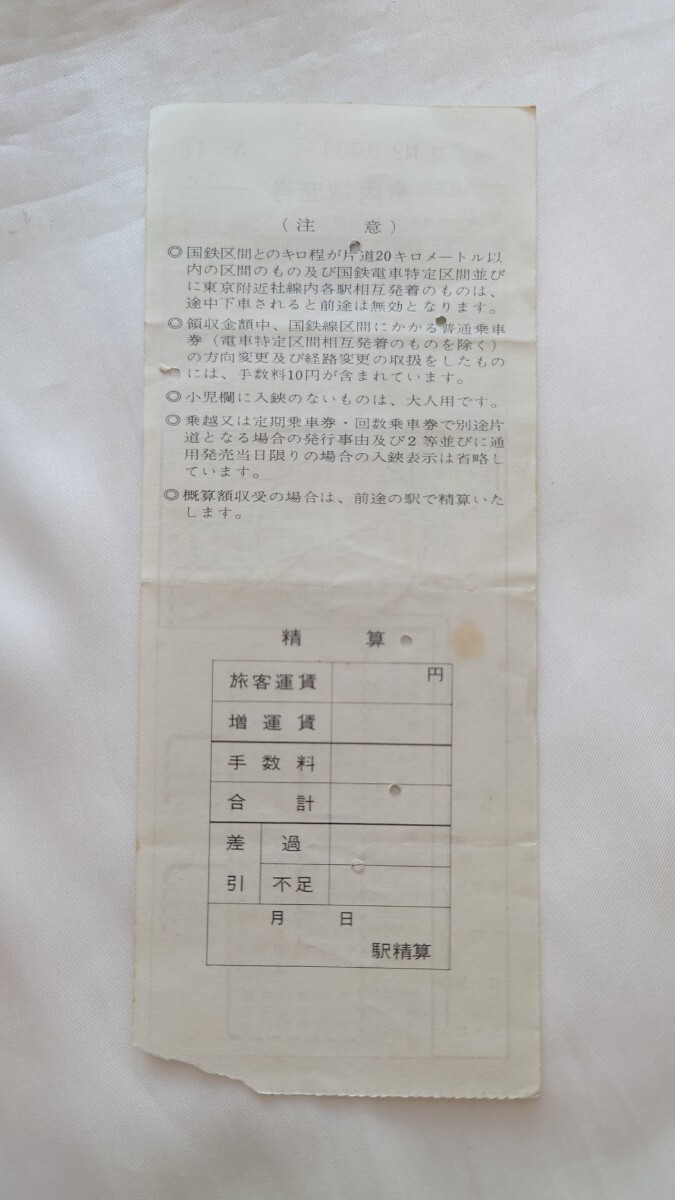 （注　　意）
◎国鉄区間とのキロ程が片道20キロメートル以
内の区間のもの及び国鉄電車特定区間並び
に東京附近社線内各駅相互発着のものは、
途中下車されると前途は無効となります。
◎領収金額中、国鉄線区間にかかる普通乗車
券（電車特定区間相互発着のものを除く）
の方向変更及び経路変更の取扱をしたもの
には、手数料10円が含まれています。
◎小児欄に入鋏のないものは、大人用です。
◎乗越又は定期乗車券・回数乗車券で別途片
道となる場合の発行事由及び2等並びに通
用発売当日限りの場合の入鋏表示は省略し
ています。
◎概算額収受の場合は、前途の駅で精算いた
します。
精　　算
旅客運賃　円
増運賃
手数料
合計
差引　過
不足
月　　日
駅精算